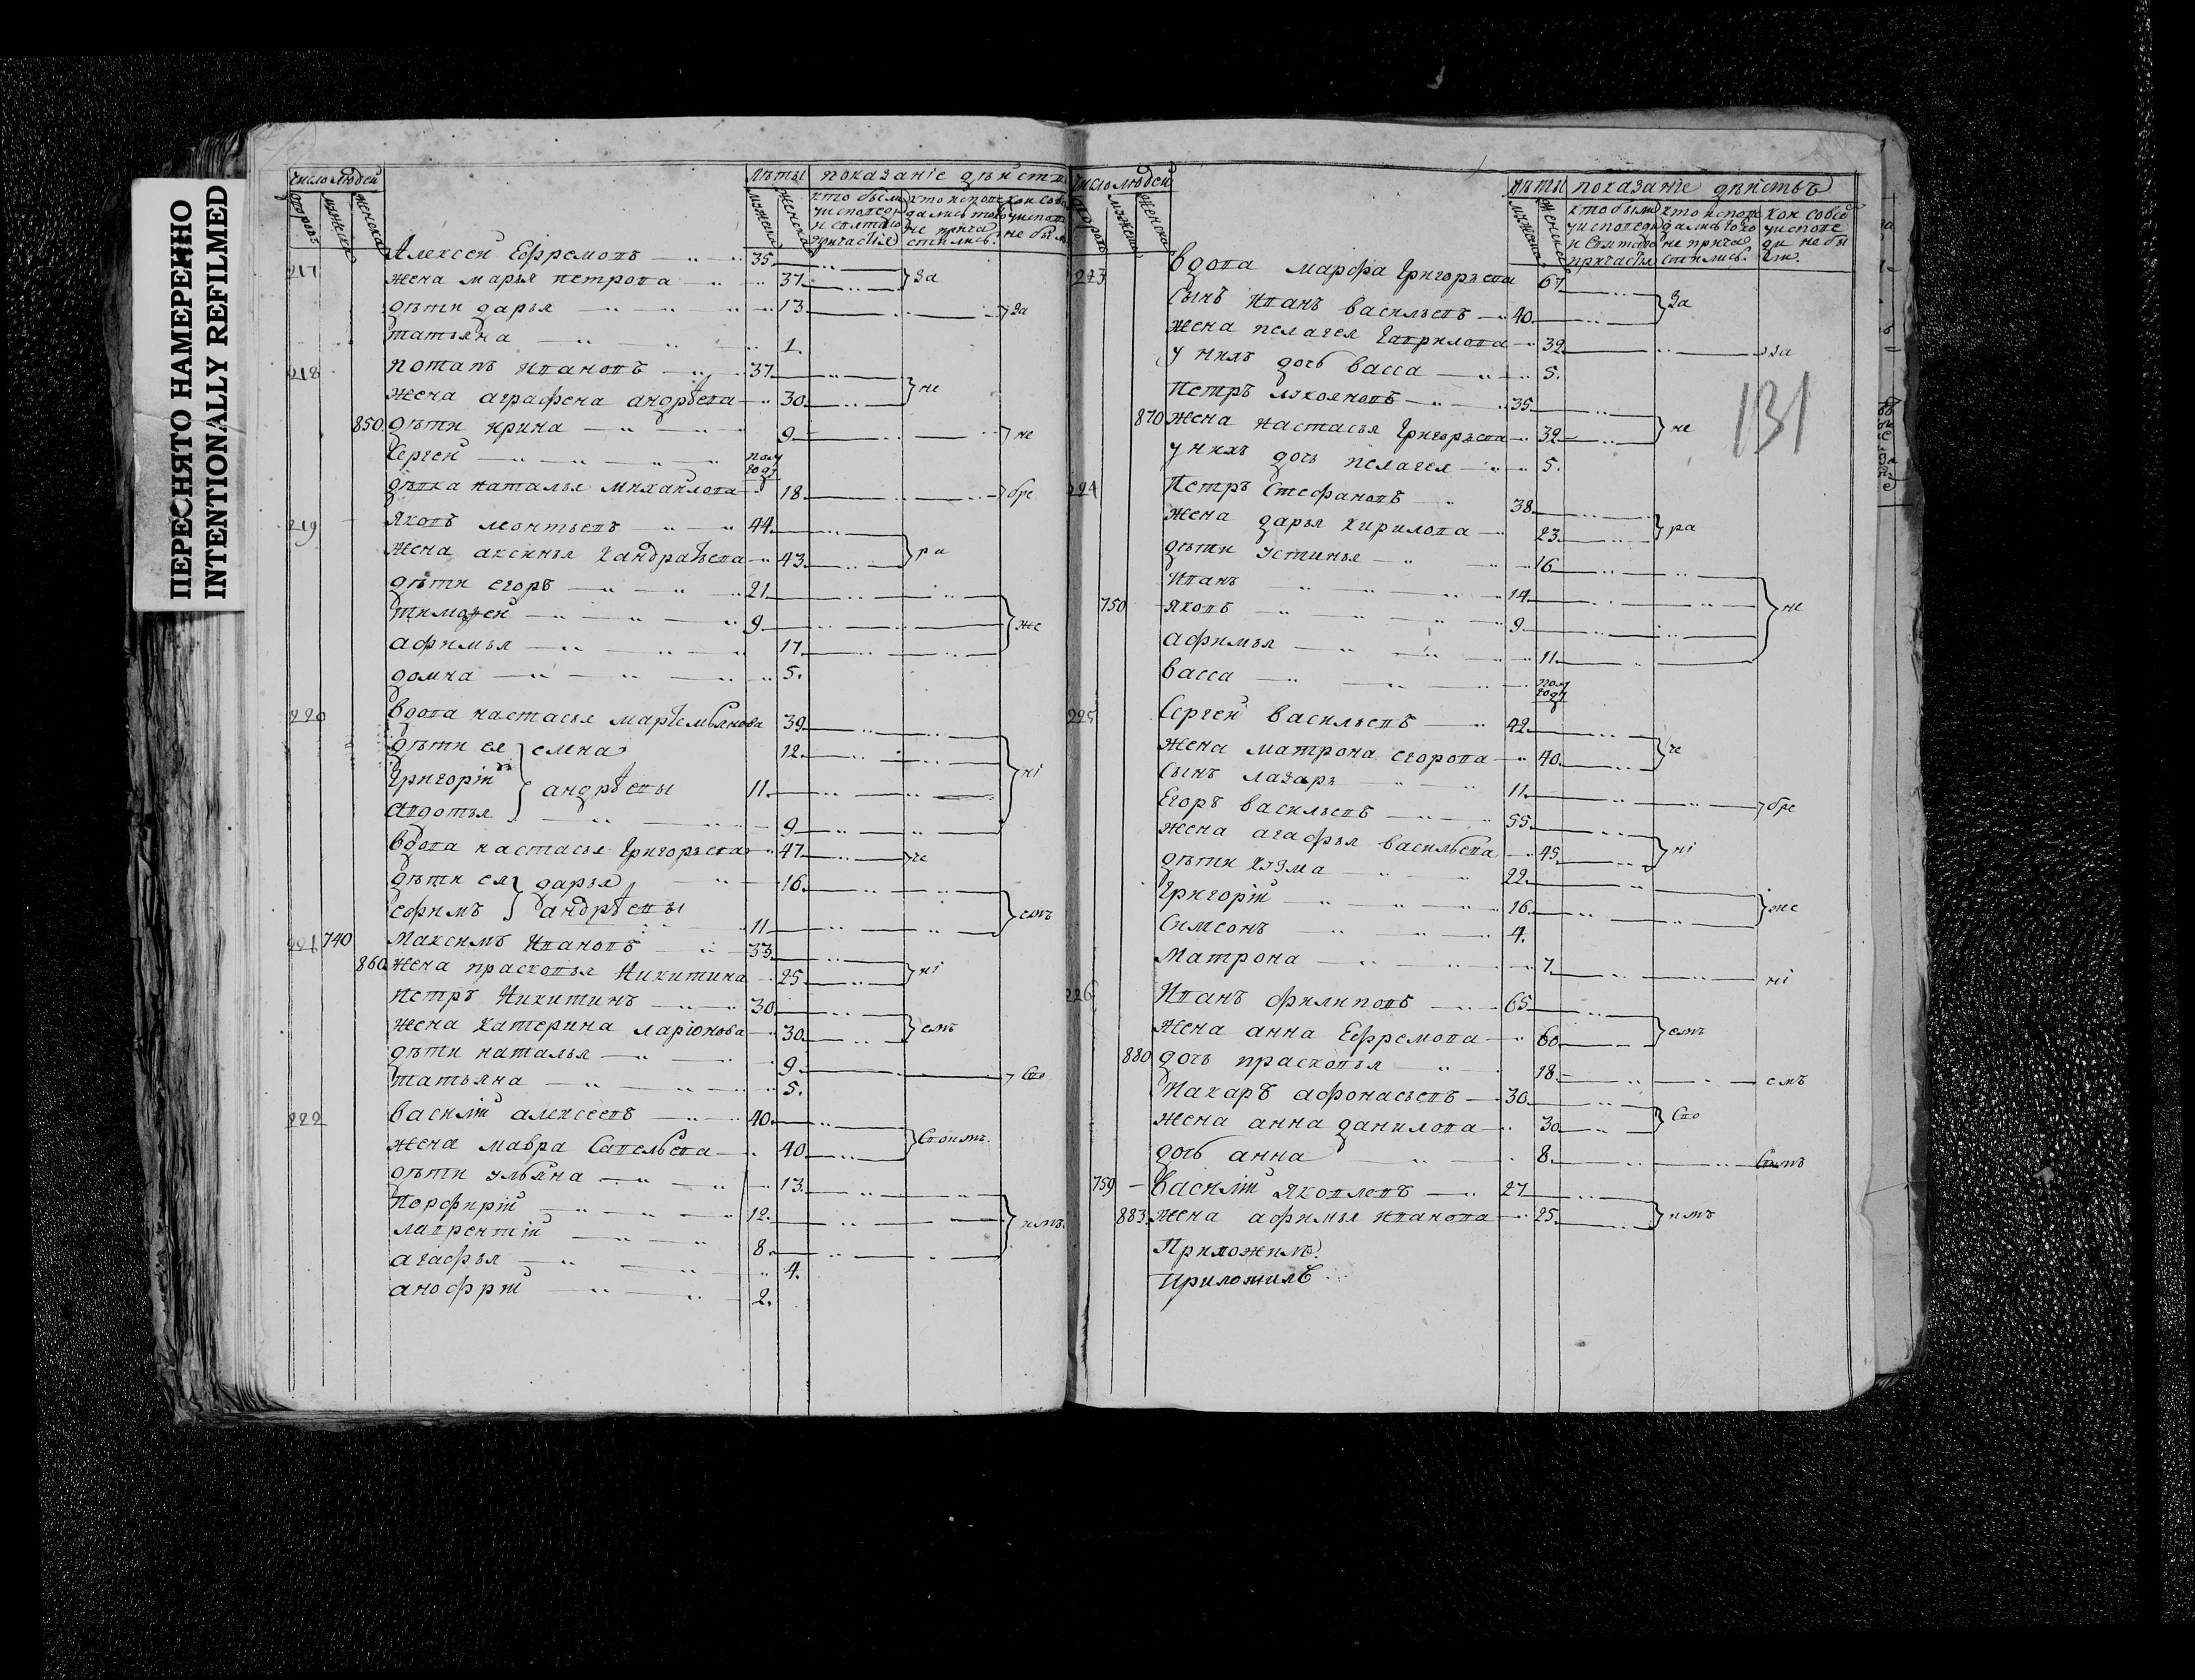 ПЕРЕСНЯТО НАМЕРЕННО
INTENTIONALLY REFILMED
число людей
лѣты показаніе дѣиств
дворовъ мужеска женска
мужеска женска
кто были у исповеди и святаго причастія
кто исповедались токо не прича стились.
кои совсе у исповеди не были
217 Алексеи Ефремовъ 35
жена марья петрова 37 За
дѣти дарья 13 За
татьяна 1.
218 потапъ ивановъ 37
жена аграфена андрѣева 30 не
850. дѣти ирина 9 не
Сергеи полу году
дѣвка наталья михаилова 18 бре
219 яковъ леонтьевъ 44
жена аксинья кандратьева 43 ра
дѣти егоръ 21
тимофеи 9 же
афимья 17
домна 5.
220 вдова настасья марѣемьянова 39
дѣти ея елена 12
Григоріи андрѣевы 11 ні
авдотья 9
вдова настасья григорьева 47 че
дѣти ея дарья 16
ефимъ андрѣевы 11 емъ
221 740 максимъ ивановъ 33
860 жена прасковья никитина 25 ні
петръ никитинъ 30
жена катерина ларіонова 30 емъ
дѣти наталья 9 Сво
татьяна 5.
222 василіи алексеевъ 40
жена мавра савельева 40 Своимъ.
дѣти ульяна 13
порфиріи 12. имъ.
лаврентіи 8
агафья 4.
анофріи 2.
число людей
лѣты показаніе дѣиствъ
дворовъ мужеска женска
мужеска женска
кто были у исповеди и святаго причастья
кто испове дались токо не прича стились.
кои совсе у испове ди не бы ли.
223 вдова марфа григорьева 67
сынъ иванъ васильевъ 40 За
жена пелагея гаврилова 32 За
у нихъ дочь васса 5.
131
петръ лукояновъ 35
870 жена настасья григорьева 32 не
у нихъ дочь пелагея 5.
224 петръ стефановъ 38
жена дарья кирилова 23 ра
дѣти устинья 16
иванъ 14 не
750 яковъ 9
афимья 11
васса полу году
225 Сергеи васильевъ 42
жена матрона егорова 40 че
сынъ лазарь 11 бре
егоръ васильевъ 55
жена агафья васильева 45 ні
дѣти кузма 22
григоріи 16 же
симеонъ 4.
матрона 7 ні
226 иванъ филиповъ 65
жена анна ефремова 60 емъ
880 дочь прасковья 18 емъ
макаръ афонасьевъ 30
жена анна данилова 30 Сво
дочь анна 8
759 василіи яковлевъ 27
883. жена афимья иванова 25 имъ
Приложимъ.
приложилъ